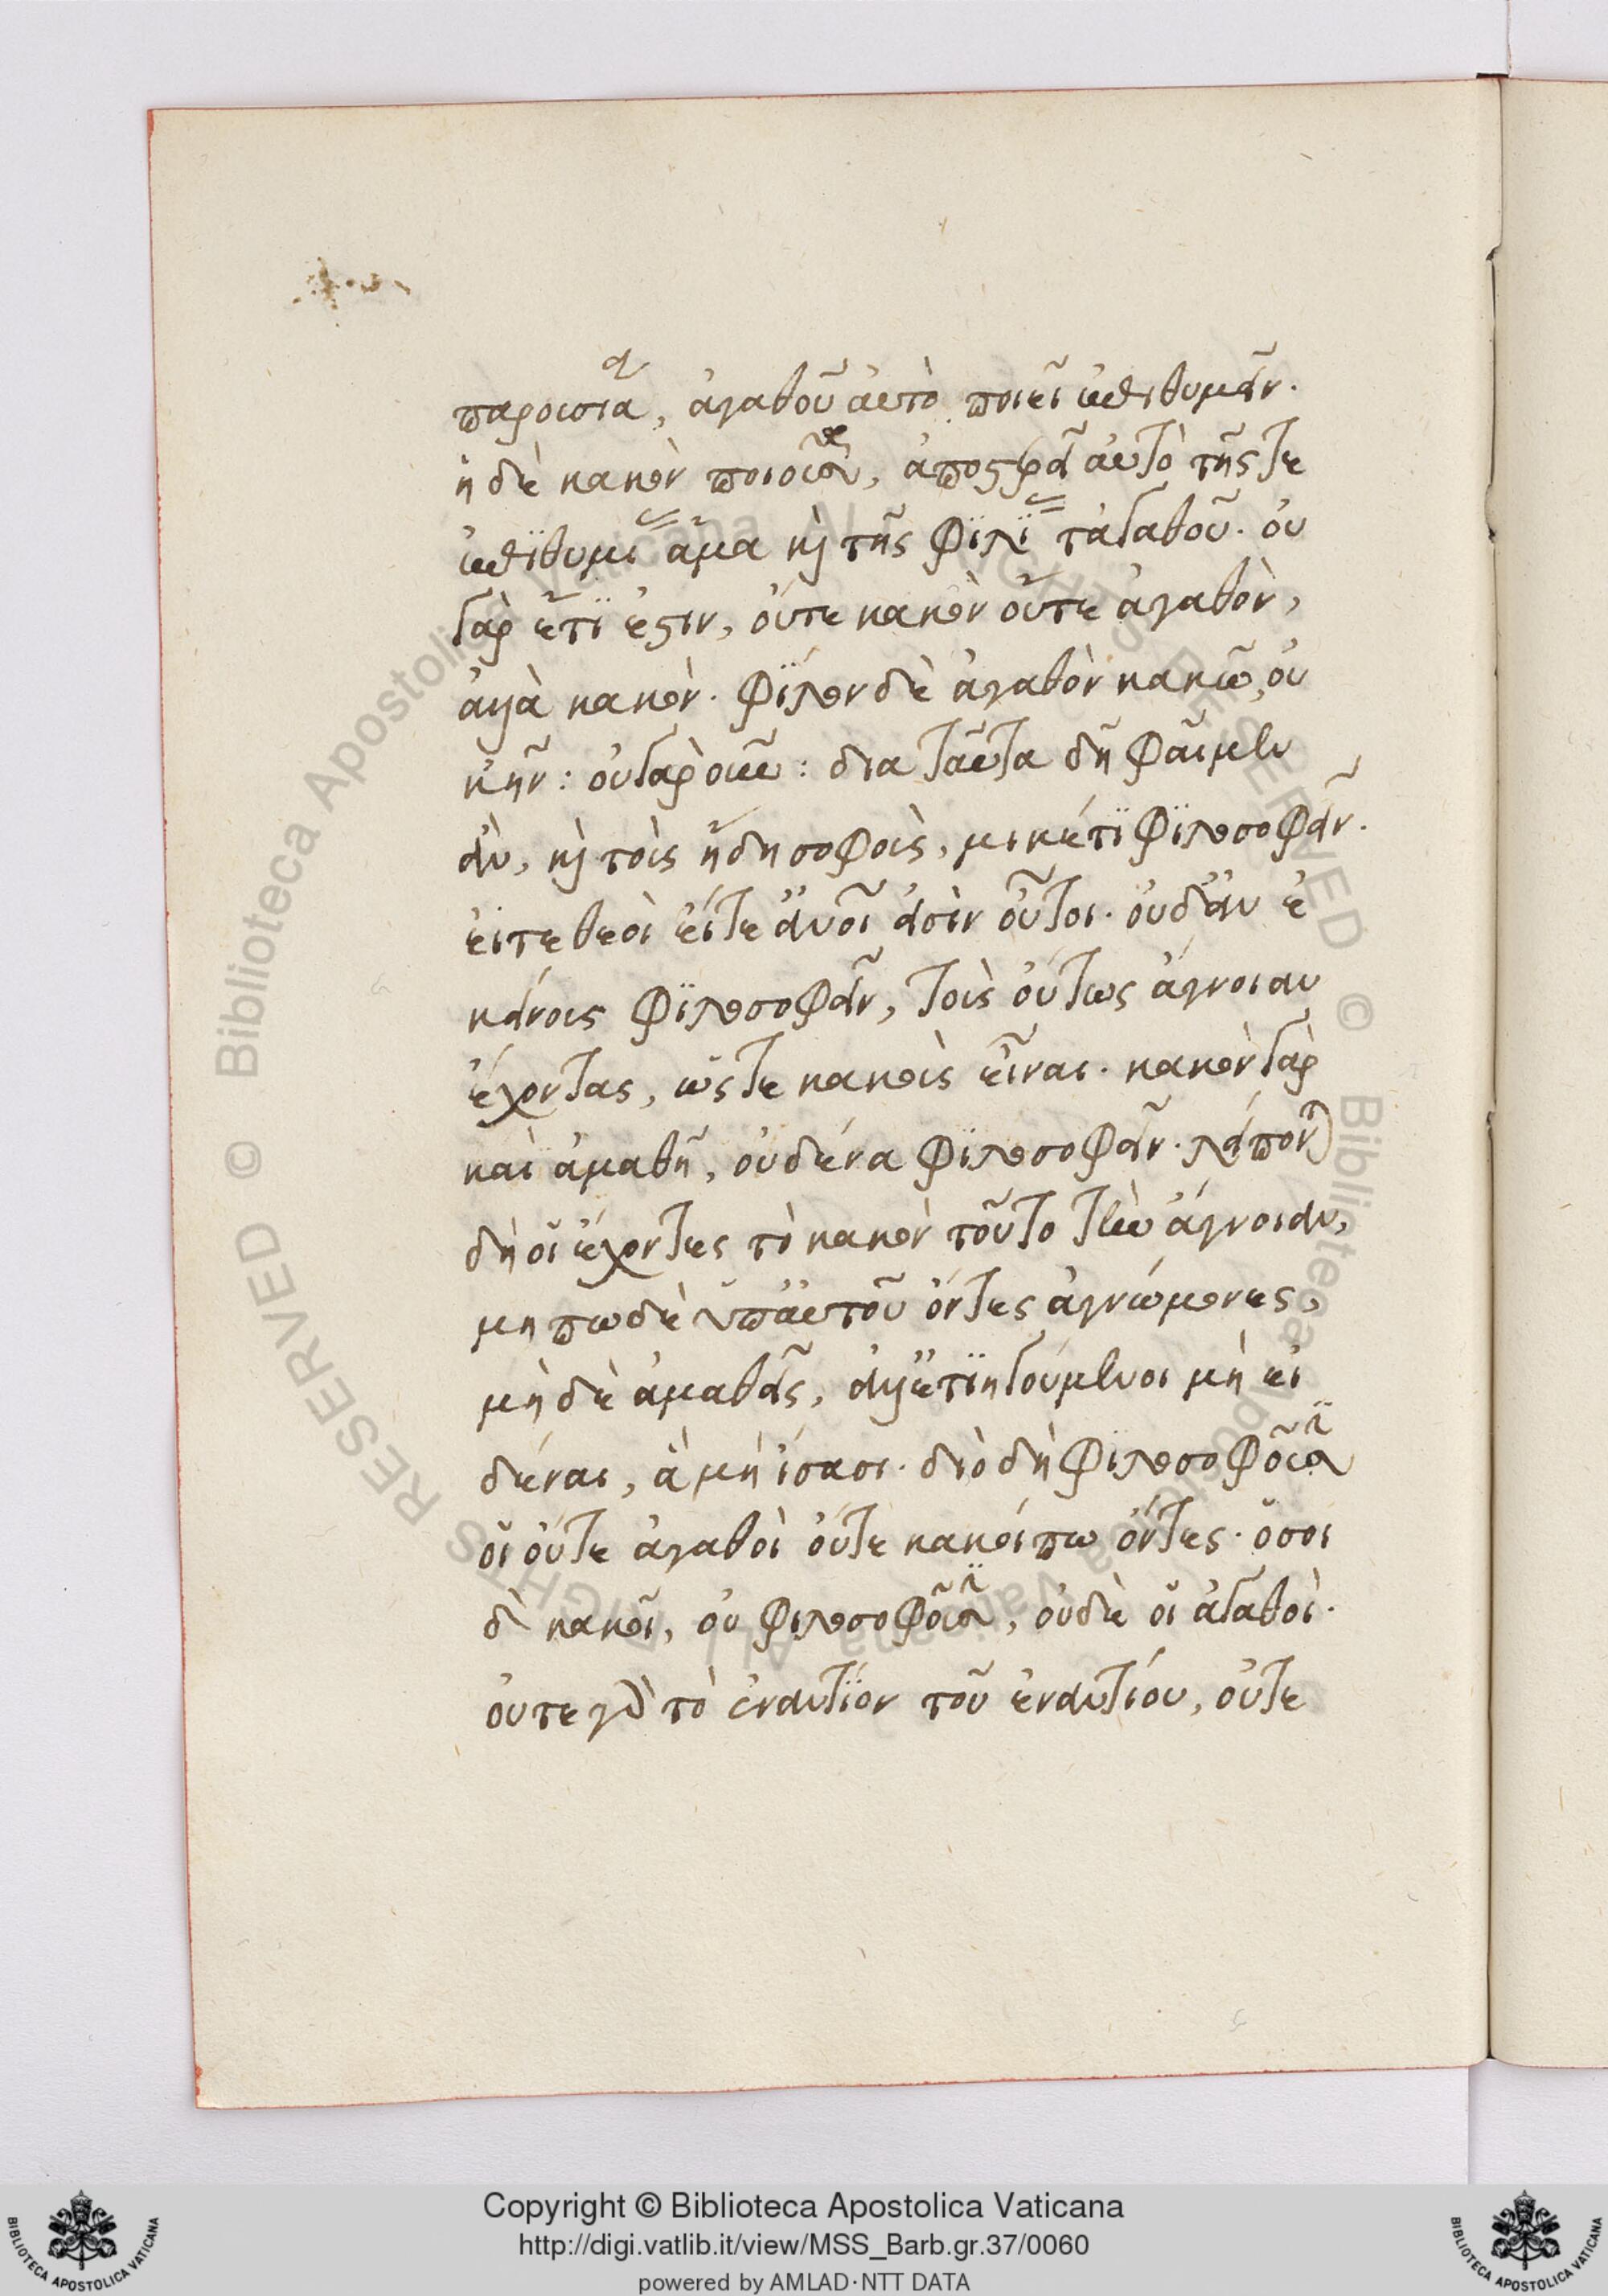 παρουσία, ἀγαθοῦ αὐτὸ ποιεῖ ἐπιθυμεῖν.
ἡ δὲ κακὸν ποιοῦσα, ἀποστερεῖ αὐτὸ τῆς τε
ἐπϊθυμίας ἅμα καὶ τῆς φϊλίας τἀγαθοῦ. οὐ
γὰρ ἔτϊ ἐστιν, οὔτε κακὸν οὔτε ἀγαθὸν,
ἀλλὰ κακὸν. φΐλον δὲ ἀγαθὸν κακῶ, οὐ
κ ἦν: οὐ γὰρ οὖν: δια ταῦτα δὴ φαῖμεν
ἂν, καὶ τοὶς ἤδη σοφοὶς, μικέτϊ φϊλοσοφεῖν.
εἴτε θεοὶ εἴτε ἄνοι εἰσὶν οὗτοι. οὐδ' ἂν ἐ
κείνοις φϊλοσοφεῖν, τοὶς οὕτως ἄγνοιαν
ἔχοντας, ὥστε κακοὶς εἶναι. κακὸν γὰρ
καὶ ἀμαθῆ, οὐδένα φϊλοσοφεῖν. λείπονται
δὴ οἱ ἔχοντες τὸ κακὸν τοῦτο τὴν ἄγνοιαν,
μη πω δὲ ὑπ' αὐτοῦ ὄντες ἀγνώμονες,
μὴ δὲ ἀμαθεῖς, ἀλλ' ἔτϊ ἡγούμενοι μὴ εἰ
δέναι, ἃ μὴ ἴσασι. διὸ δὴ φϊλοσοφοῦσιν
οἱ οὔτε ἀγαθοὶ οὔτε κακοί πω ὄντες. ὅσοι
δὲ κακοῖ, οὐ φιλοσοφοῦσιν, οὐδὲ οἱ ἀγαθοὶ.
οὐτε γὰρ τὸ ἐναντΐον τοῦ ἐναντίου, οὔτε
© Biblioteca Apostolica Vaticana ALL RIGHTS RESERVED © Biblioteca Apostolica Vaticana ALL RIGHTS RESERVED
Copyright © Biblioteca Apostolica Vaticana
http://digi.vatlib.it/view/MSS_Barb.gr.37/0060
powered by AMLAD·NTT DATA
BIBLIOTECA APOSTOLICA VATICANA
BIBLIOTECA APOSTOLICA VATICANA